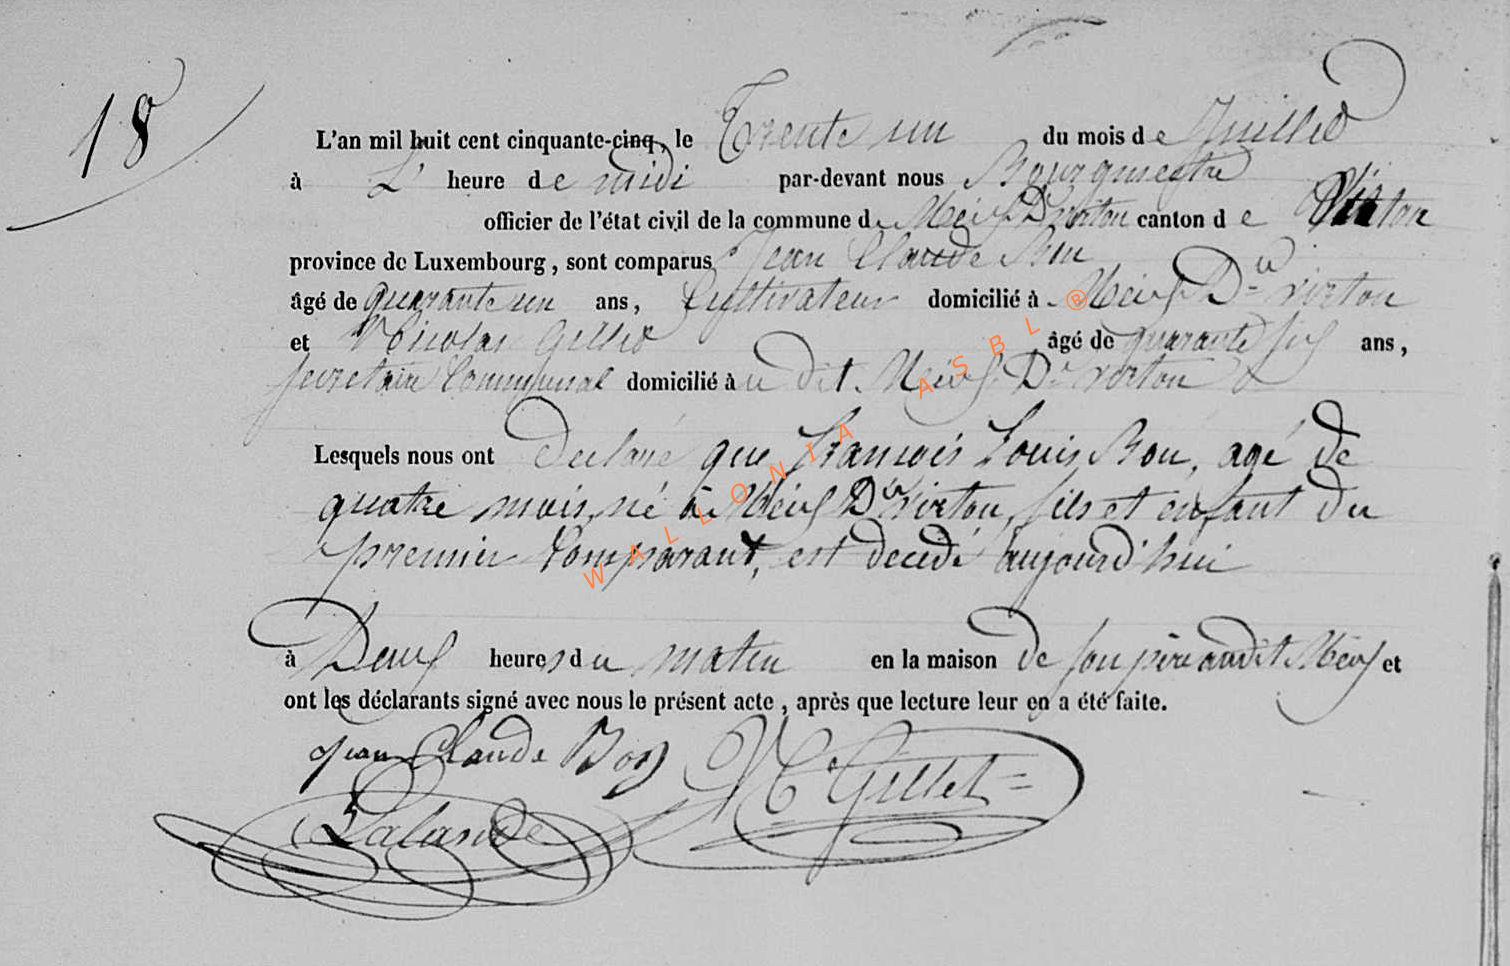 18
L'an mil huit cent cinquante-cinq, le Trente un du mois de Juillet
à L' heure de midi par-devant nous Bourgmestre
officier de l'état civil de la commune de Meix Dt virton canton de Virton
province de Luxembourg, sont comparus Jean Claude Bon
âgé de quarante un ans, Cultivateur domicilié à Meix Dt virton
et Nicolas Gillet âgé de quarante six ans,
secretaire Communal domicilié au dit Meix Dt virton
Lesquels nous ont Declaré que François Louis Bon, agé de
quatre mois, né à Meix Dt virton, fils et enfant du
premier Comparant, est decedé aujourd'hui
à Deux heures du matin en la maison de son père audit Meix et
ont les déclarants signé avec nous le présent acte, après que lecture leur en a été faite.
Jean Claude Bon N Gillet
Lalande
WALLONIA ASBL ®